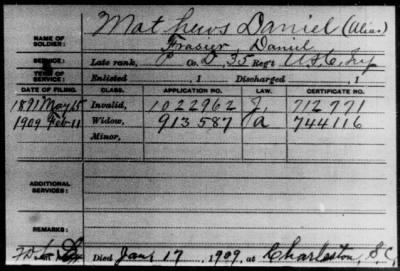 NAME OF SOLDIER: Mathews Daniel (Alias)
Frasier, Daniel
SERVICE: Late rank, Co. D, 35 Reg't U.S.C. Inf
TERM OF SERVICE: Enlisted , 1 Discharged , 1
DATE OF FILING. CLASS. APPLICATION NO. LAW. CERTIFICATE NO.
1891 May 15 Invalid, 1022962 J, 712771
1909 Feb-11 Widow, 913587 a 744116
Minor,
ADDITIONAL SERVICES:
REMARKS:
Died Jan, 17, 1909, at Charleston, S.C.